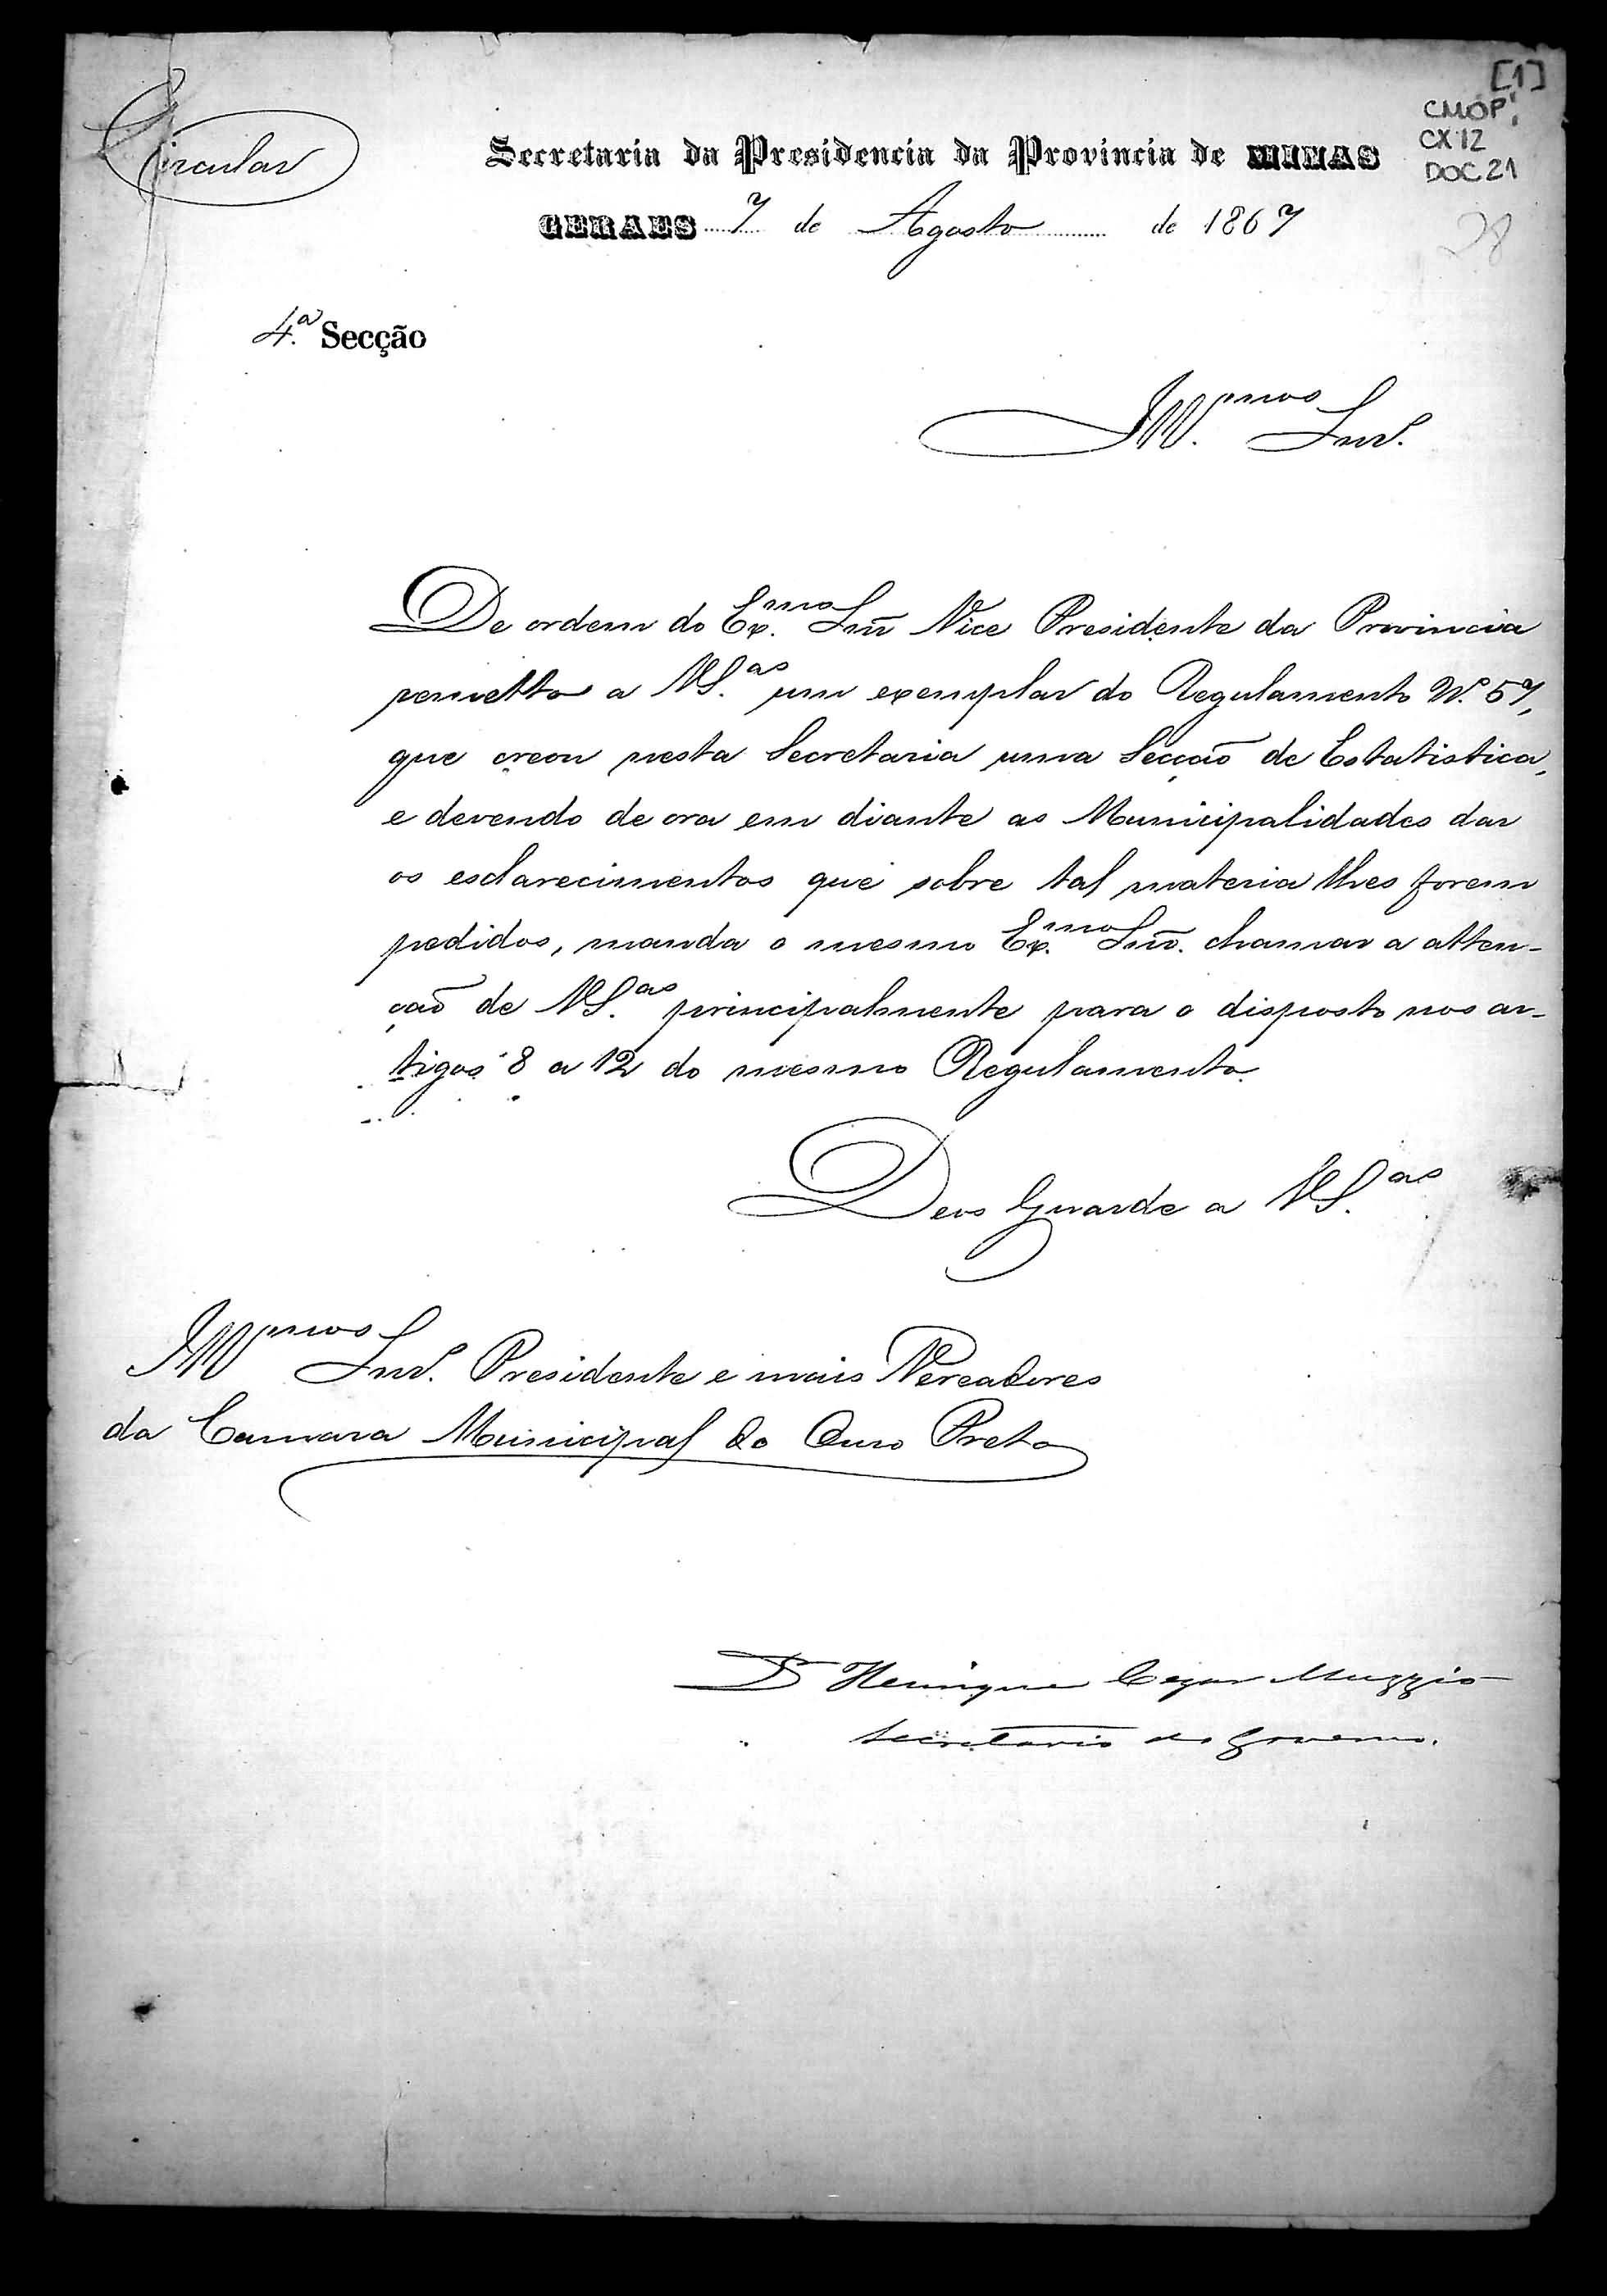 [1]
CMOP
CX 12
DOC. 21
28
Circular
Secretaria da Presidencia da Provincia de MINAS
GERAES 7 de Agosto de 1867
4.ª Secção
Ill.mos Snrs.
De ordem do Ex.mo Snr̃ Vice Presidente da Provincia
remetto a VS.as um exemplar do Regulamento N.º 57,
que creou nesta Secretaria uma Secção de Estatistica,
e devendo de ora em diante as Municipalidades dar
os esclarecimentos que sobre tal materia lhes forem
pedidos, manda o mesmo Ex.mo Snr̃. chamar a atten-
ção de VS.as principalmente para o disposto nos ar-
tigos 8 a 12 do mesmo Regulamento.
Deos Guarde a VS.as
Ill.mos Snrs. Presidente e mais Vereadores
da Camara Municipal do Ouro Preto
Dr Henrique Cezar Muzzio
Secretario do Governo.